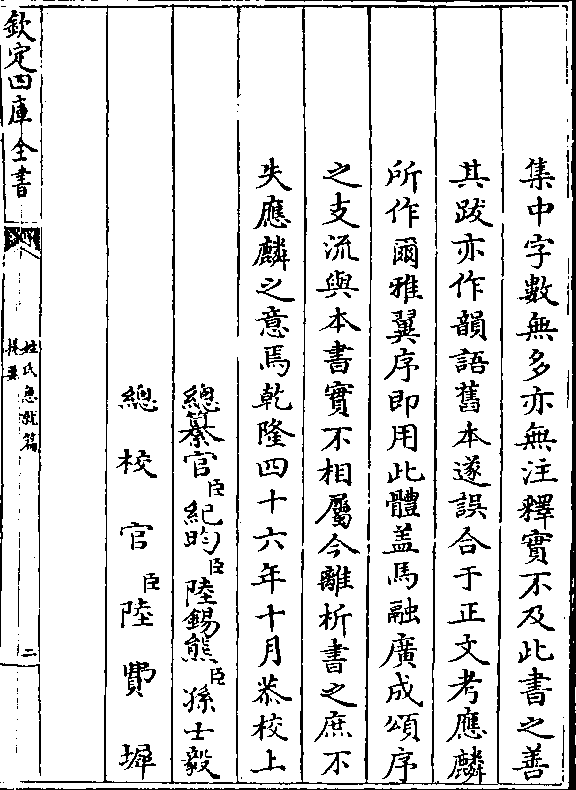 集中字數無多亦無注釋實不及此書之善
其跋亦作韻語舊本遂誤合于正文考應麟
所作爾雅翼序即用此體盖馬融廣成頌序
之支流與本書實不相屬今離析書之庶不
失應麟之意焉乾隆四十六年十月恭校上
總纂官臣紀昀臣陸錫熊臣孫士毅
總校官臣陸費墀
欽定四庫全書
姓氏急就篇
提要
二